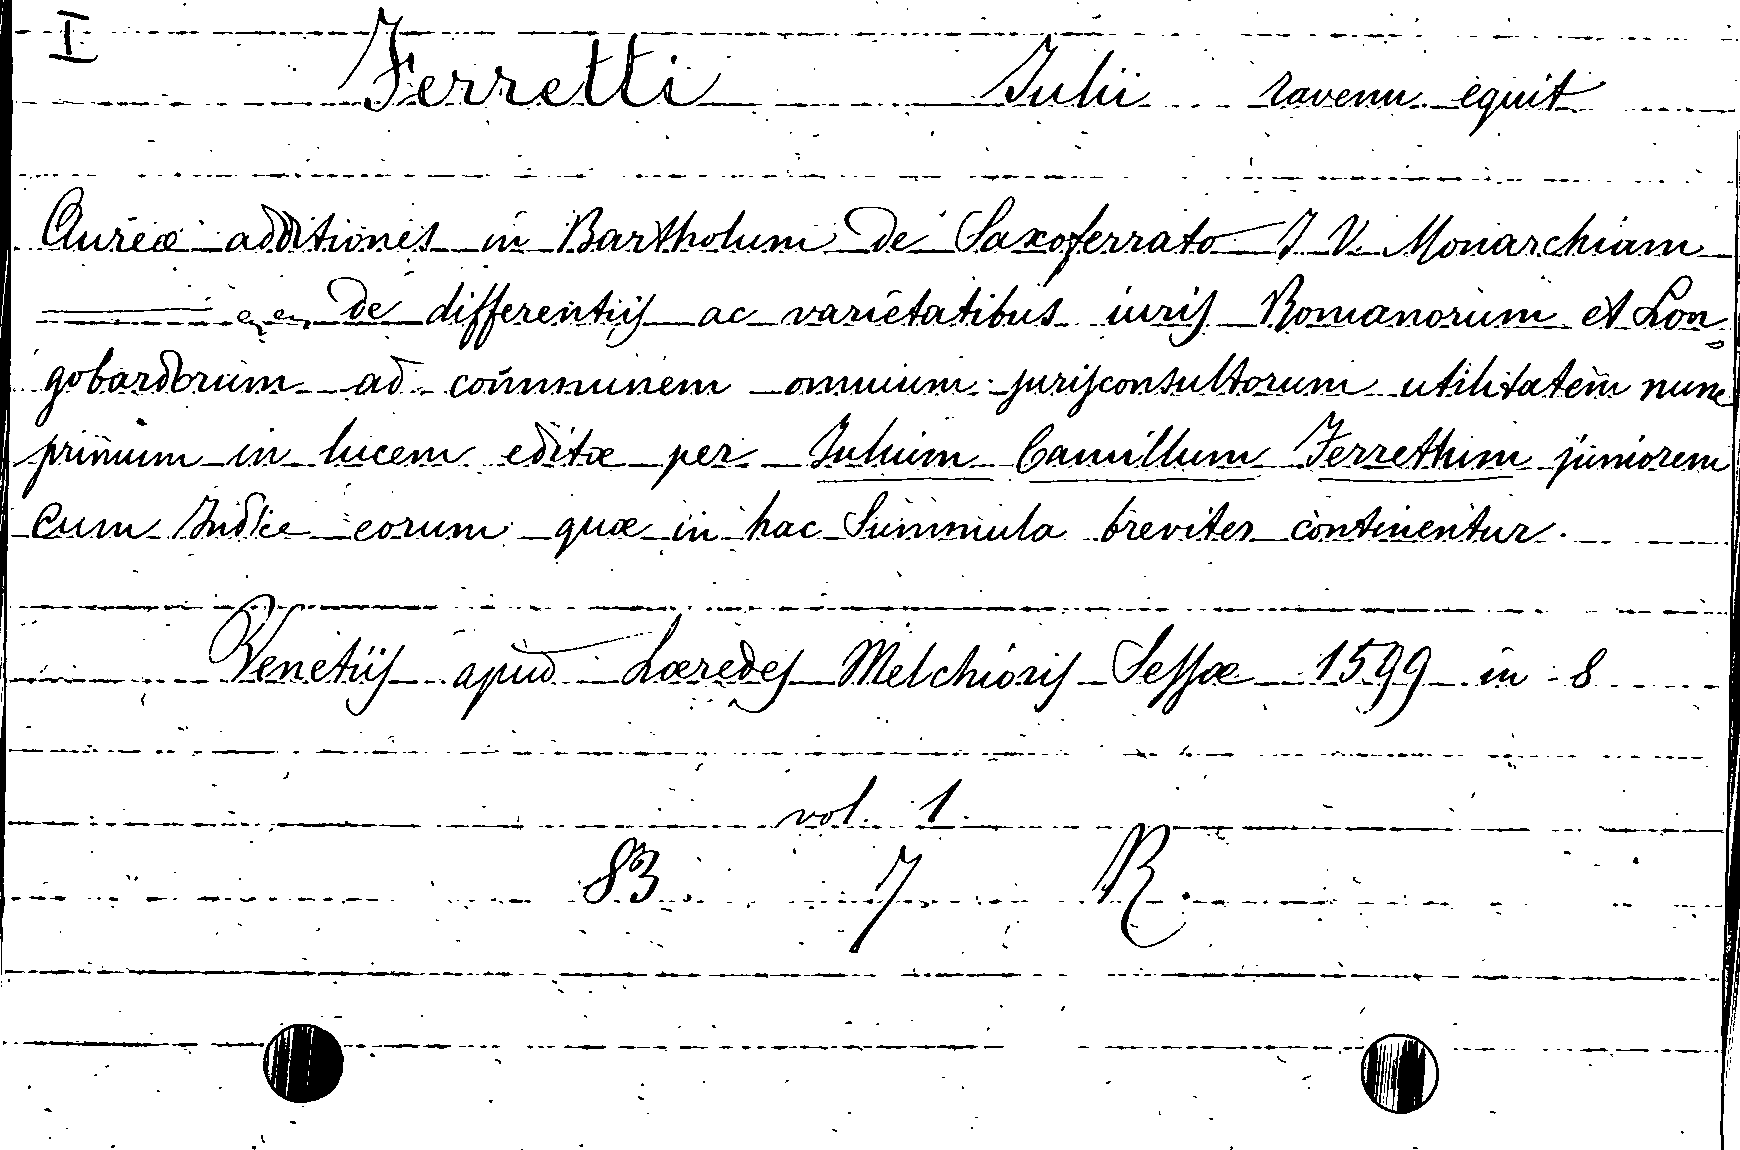 I
Ferretti Julii ravenn equit
Aureæ additiones in Bartholum de Saxoferrato J V. Monarchiam
de differentijs ac varietatibus iuris Romanorum et Lon
gobardorum ad communem omnium jurisconsultorum utilitatem nunc
primum in lucem editæ per Julium Camillum Ferrettum juniorem
cum Indice eorum quæ in hac Summula breviter continentur.
Venetijs apud hæredes Melchioris Sessæ 1599 in 8
vol. 1.
83 7 R.